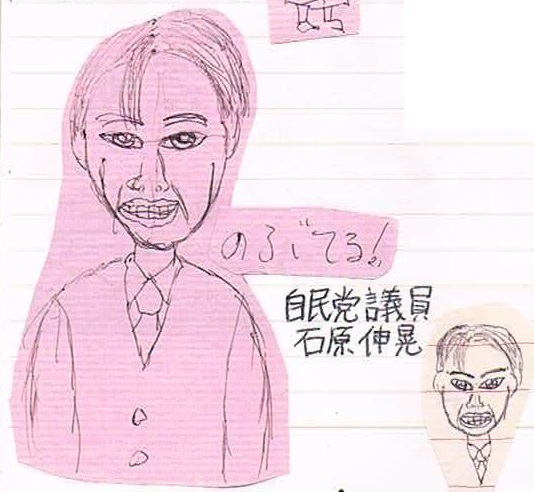 のぶてる!
自民党議員
石原伸晃